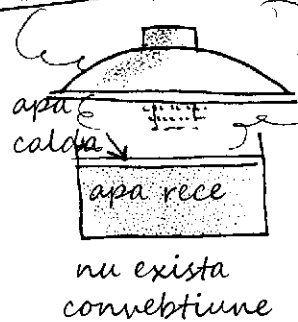 apa
calda
apa rece
nu exista
convebtiune